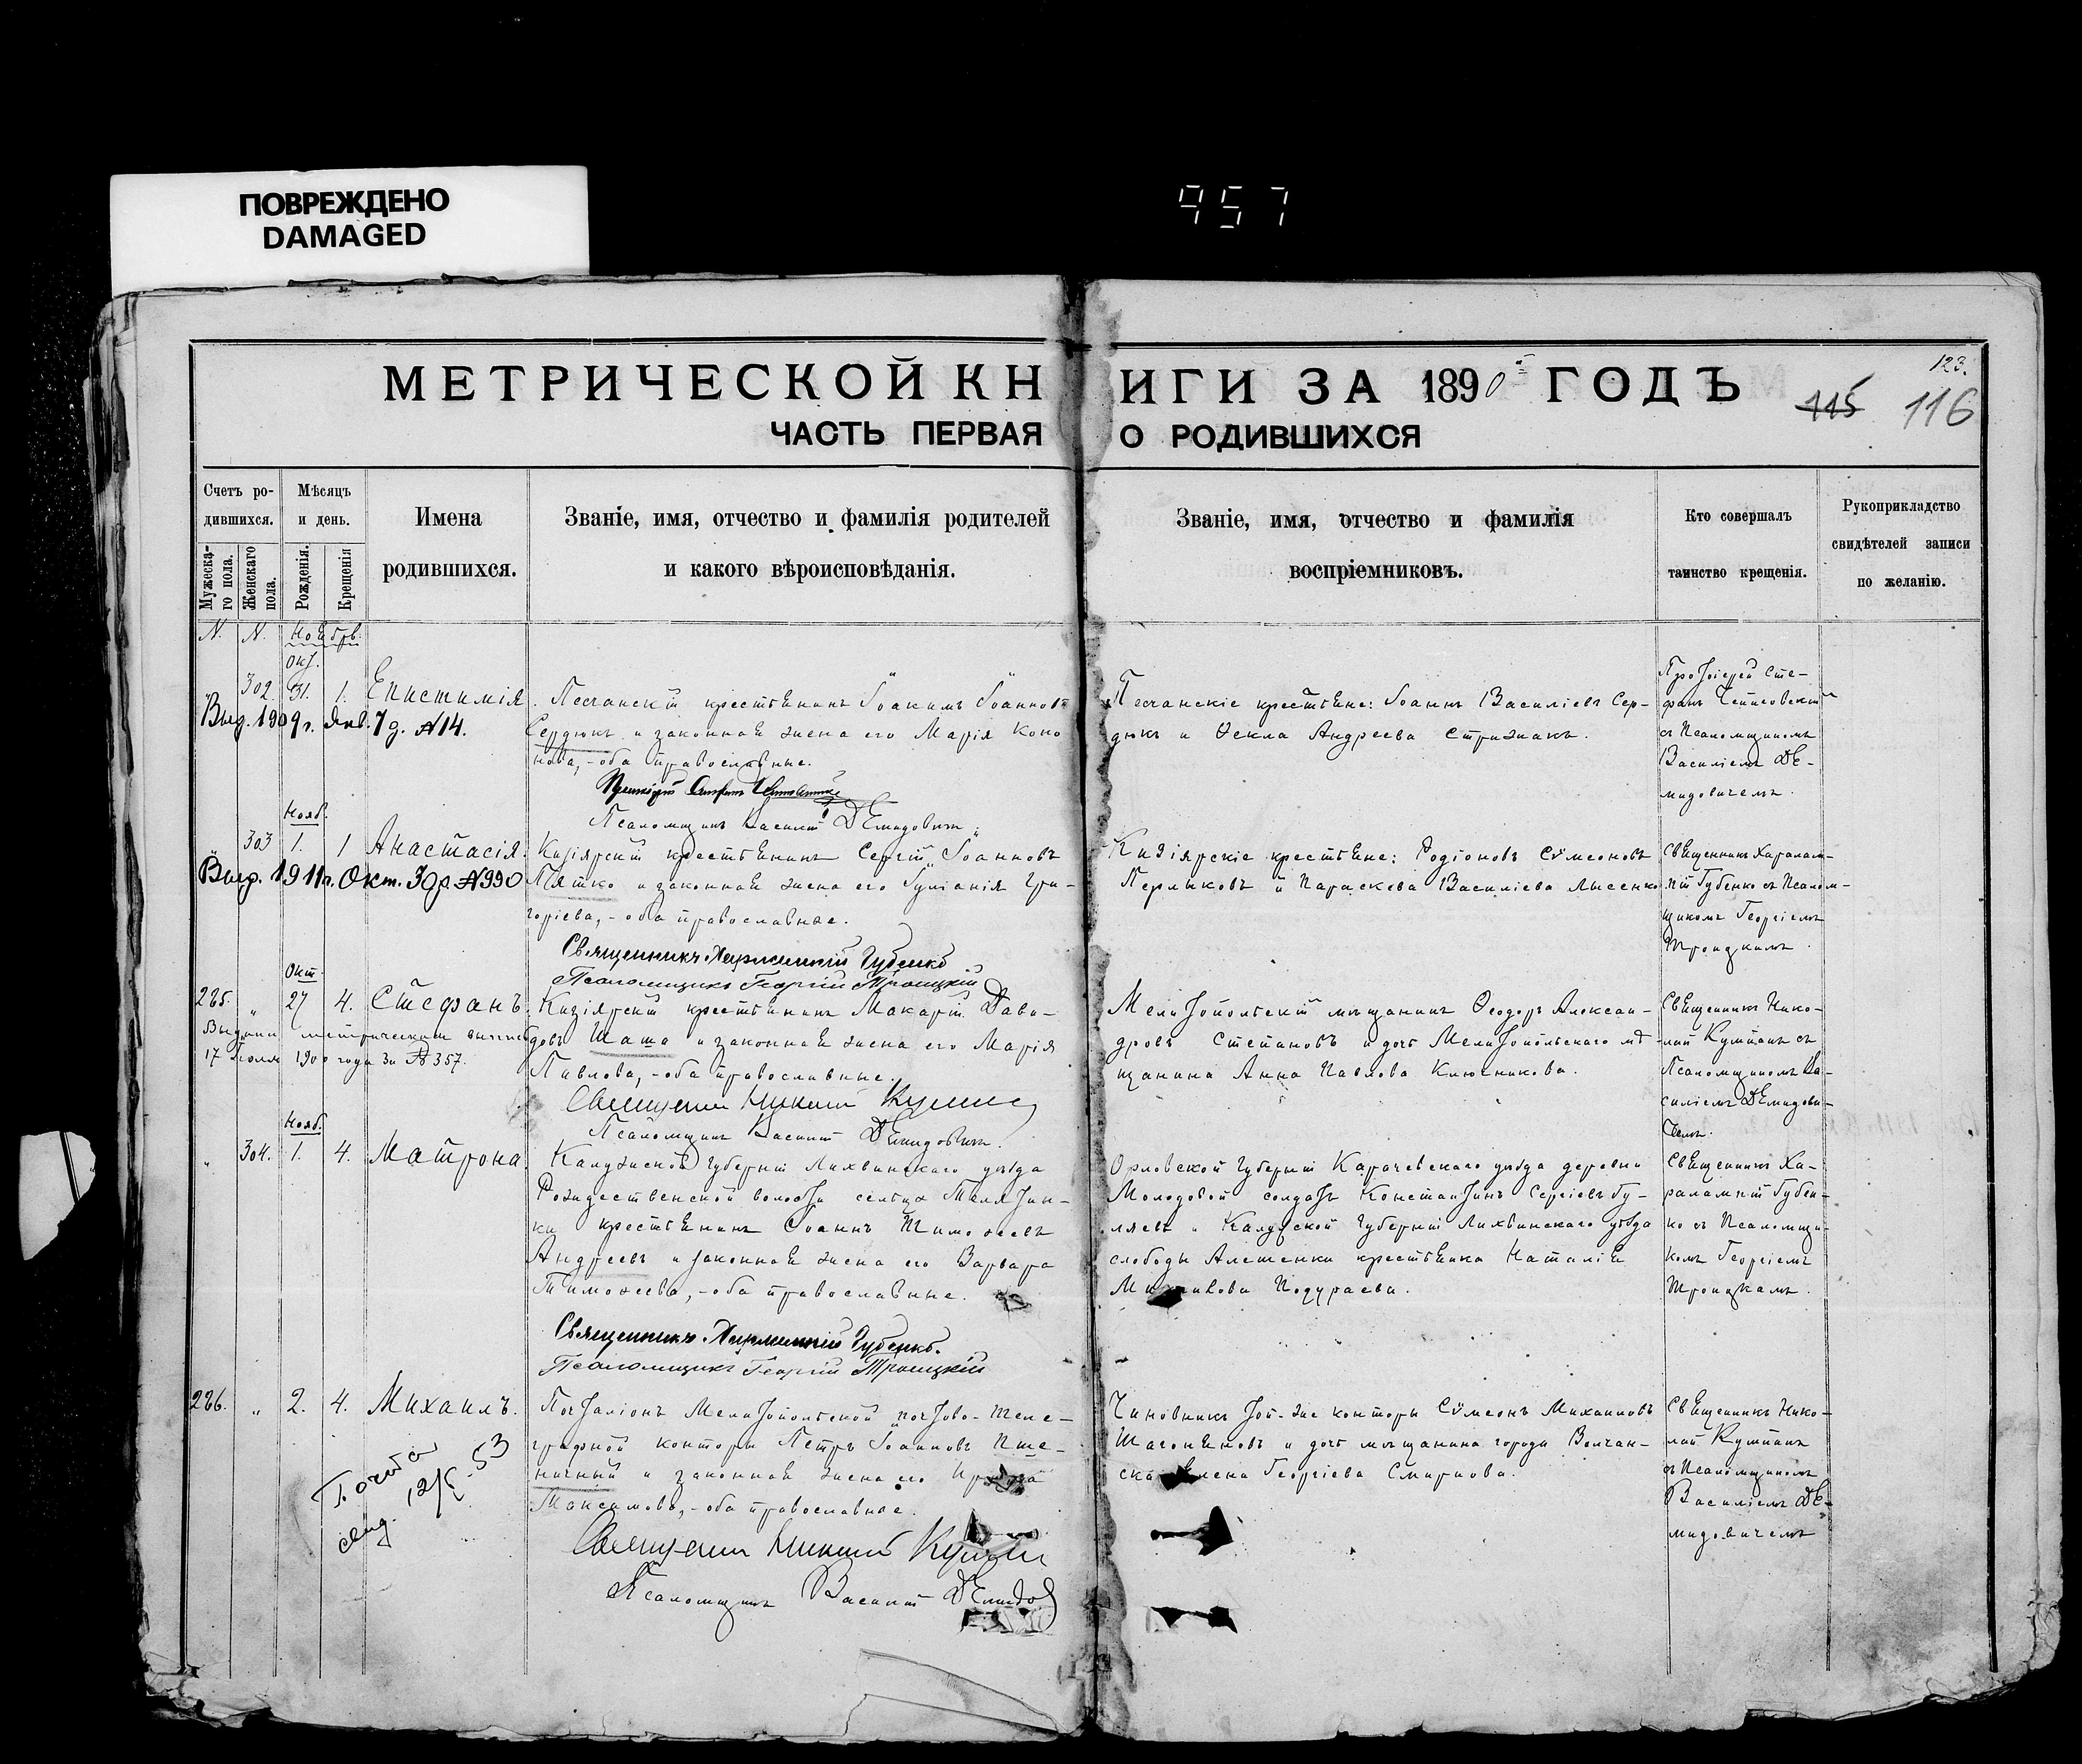 ПОВРЕЖДЕНО
DAMAGED
957
МЕТРИЧЕСКОЙ КНИГИ ЗА 1890й ГОДЪ
123.
115 116
ЧАСТЬ ПЕРВАЯ О РОДИВШИХСЯ
Счетъ ро-
дившихся.
Мужеска-
го пола.
Женскаго
пола.
Мѣсяцъ
и день.
Рожденія.
Крещенія
Имена
родившихся.
Званіе, имя, отчество и фамилія родителей
и какого вѣроисповѣданія.
Званіе, имя, отчество и фамилія
воспріемниковъ.
Кто совершалъ
таинство крещенія.
Рукоприкладство
свидѣтелей записи
по желанію.
N. N. Ноябрь.
Окт.
302 31. 1. Епистимія
Выд. 1909 г. Янв. 7 д. №14.
Песчанскій крестьянинъ Іоакимъ Іоанновъ
Сердюкъ и законная жена его Марія Коно
нова,-оба православные.
Псаломщикъ Василій Демидовичъ
Песчанскіе крестьяне: Іоаннъ Василіевъ Сер-
дюкъ и Ѳекла Андреева Стрижакъ.
Протоіерей Сте-
фанъ
съ Псаломщикомъ
Василіемъ Де-
мидовичемъ.
Нояб.
303 1. 1 Анастасія.
Выд. 1911 г. Окт. 30 д. №990
Кизіярскій крестьянинъ Сергій Іоанновъ
Пятко и законная жена его Іуліанія Гри-
горіева,-оба православные.
Священникъ Харлампій Губенко
Псаломщикъ Георгій Троицкій
Кизіярскіе крестьяне: Родіоновъ Сѵмеоновъ
Перлыковъ и Параскева Василіева Лысенко
Священникъ Харалам-
пій Губенко съ Псалом-
щикомъ Георгіемъ
Троицкимъ.
Окт.
225. " 27 4. Стефанъ.
17 Іюля 1900 года за №357.
Кизіярскій крестьянинъ Макарій Дави-
довъ Шата и законная жена его Марія
Павлова,-оба православные.
Священникъ Николай
Псаломщикъ Василій Демидовичъ.
Мелитопольскій мѣщанинъ Ѳеодоръ Алексан-
дровъ Степановъ и дочь Мелитопольскаго мѣ-
щанина Анна Павлова Ключникова.
Священникъ Нико-
лай съ
Псаломщикомъ Ва-
силіемъ Демидови-
чемъ.
Нояб.
" 304. 1. 4. Матрона
Калужской губерніи Лихвинскаго уѣзда
Рождественской волости сельца
крестьянинъ Іоаннъ Тимоѳеевъ
Андреевъ и законная жена его Варвара
Тимоѳеева,-оба православные.
Священникъ Харлампій Губенко.
Псаломщикъ Георгій Троицкій
Орловской губерніи Карачевскаго уѣзда деревни
Молодовой солдатъ Константинъ Сергіевъ Гу-
ляевъ и Калужской губерніи Лихвинскаго уѣзда
слободы Алешенки крестьянка Наталія
Подураева.
Священникъ Ха-
ралампій Губен-
ко съ Псаломщи-
комъ Георгіемъ
Троицкимъ.
226. " 2. 4. Михаилъ.
Почталіонъ Мелитопольской почтово-теле-
графной конторы Петръ Іоанновъ Пше-
ничный и законная жена его
Максимова,-оба православные.
Священникъ Николай
Псаломщикъ Василій
Чиновникъ той-же конторы Сѵмеонъ Михаиловъ
и дочь мѣщанина города Волчан-
ска Елена Георгіева Смирнова.
Священникъ Нико-
лай
съ Псаломщикомъ
Василіемъ Де-
мидовичемъ